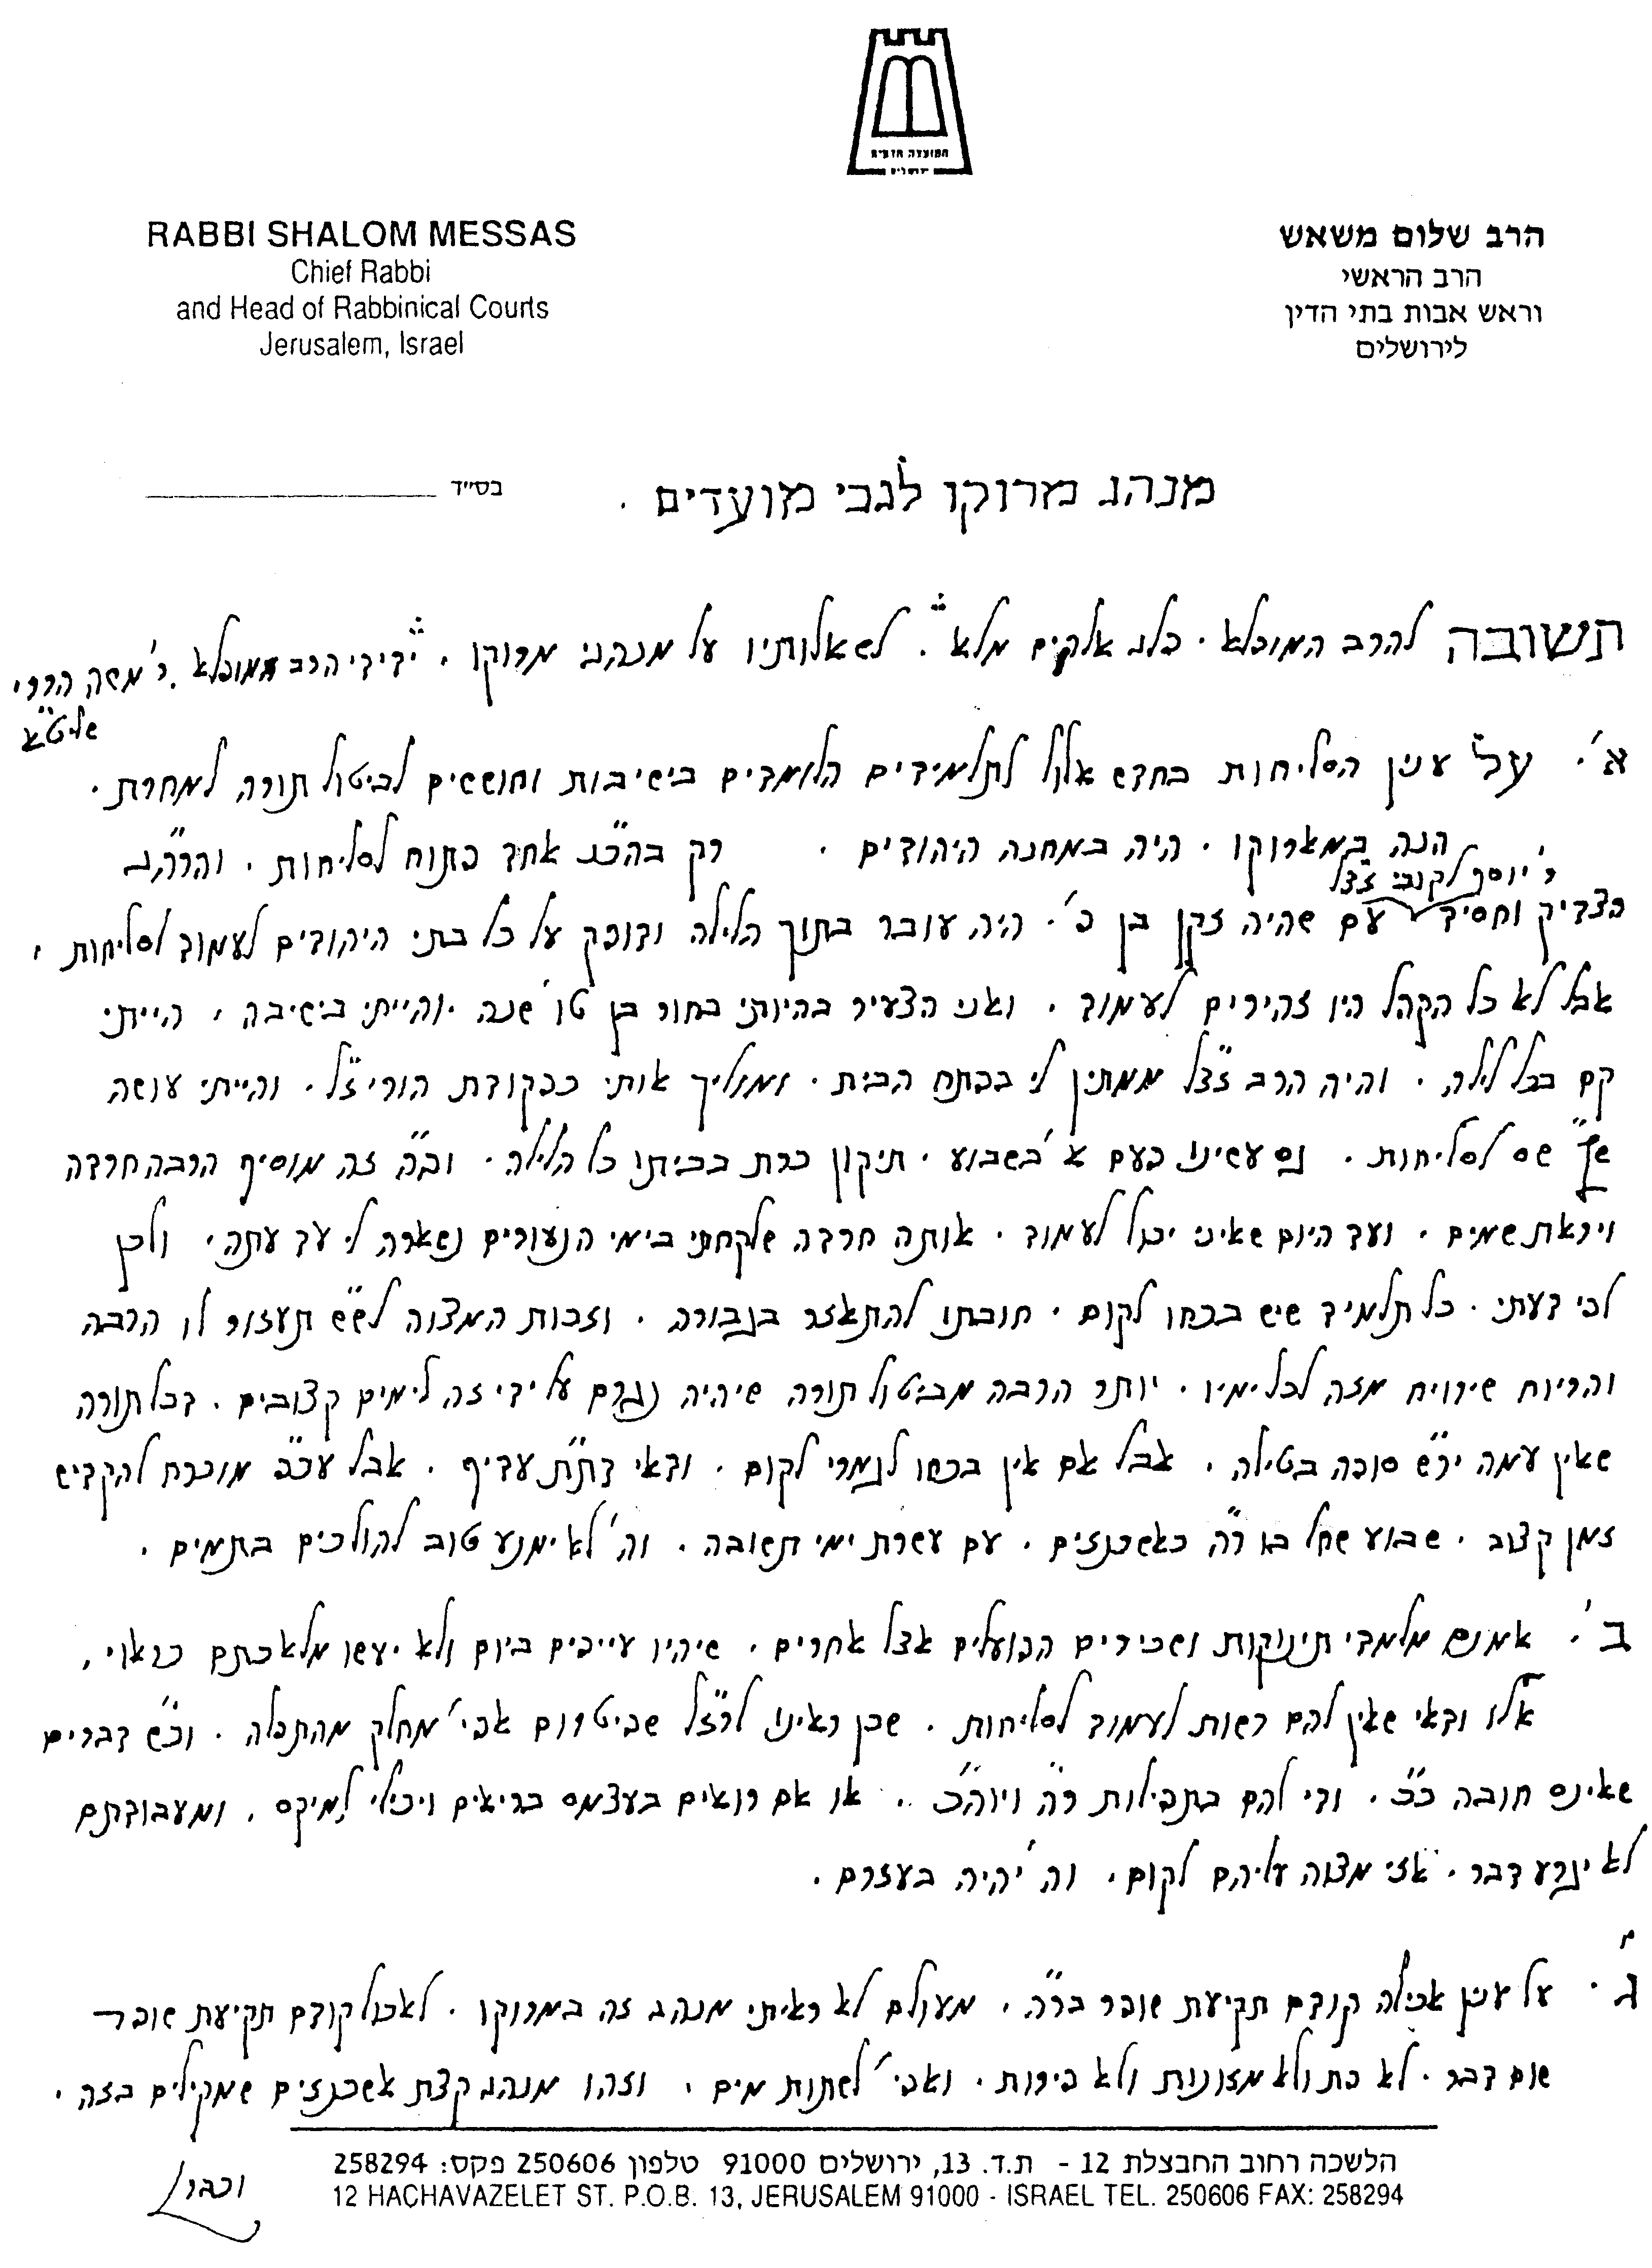 המועצה הדתית
ירושלים
RABBI SHALOM MESSAS
Chief Rabbi
and Head of Rabbinical Courts
Jerusalem, Israel
הרב שלום משאש
הרב הראשי
וראש אבות בתי הדין
לירושלים
בס"ד
מנהג מרוקו לגבי מועדים .
תשובה להרב המופלא . כלב אלקים מלא . לשאלותיו על מנהגי מרוקו . ידידי הרב המופלא . ר' משה הררי
שליט"א
א'. על ענין הסליחות בחדש אלול לתלמידים הלומדים בישיבות וחוששים לביטול תורה למחרת .
הנה במארוקו . היה במחנה היהודים . רק בהכ"נ אחד פתוח לסליחות . והרה"ג
ר' יוסף לקובי זצ"ל
הצדיק וחסיד עם שהיה זקן בן פ'. היה עובר בתוך הלילה ודופק על כל בתי היהודים לעמוד לסליחות ,
אבל לא כל הקהל היו זהירים לעמוד . ואני הצעיר בהיותי בחור בן טו' שנה . והייתי בישיבה , הייתי
קם בכל לילה . והיה הרב זצ"ל ממתין לי בפתח הבית . ומוליך אותי כפקודת הורי ז"ל . והייתי עושה
ש"ץ שם לסליחות . גם עשינו פעם א' בשבוע . תיקון כרת בביתו כל הלילה . ובה זה מוסיף הרבה חרדה
ויראת שמים . ועד היום שאיני יכול לעמוד . אותה חרדה שלקחתי בימי הנעורים נשארה לי עד עתה , ולכן
לפי דעתי . כל תלמיד שיש בכחו לקום . חובתו להתאזר בגבורה . וזכות המצוה לש"ש תעזור לו הרבה
והריוח שירויח מזה לכל ימיו . יותר הרבה מביטול תורה שיהיה נגרם על ידי זה לימים קצובים . דכל תורה
שאין עמה יר"ש סופה בטילה . אבל אם אין בכחו לגמרי לקום . ודאי דת"ת עדיף . אבל עכ"פ מוכרח להקדיש
זמן קצוב . שבוע שחל בו ר"ה כאשכנזים . עם עשרת ימי תשובה . וה' לא ימנע טוב להולכים בתמים .
ב'. אמנם מלמדי תינוקות ושכירים הפועלים אצל אחרים . שיהיו עייפים ביום ולא יעשו מלאכתם כראוי ,
אלו ודאי שאין להם רשות לעמוד לסליחות . שכן ראינו לרז"ל שפיטרום אפי' מחלק מהתפלה . וכ"ש דברים
שאינם חובה כ"כ . ודי להם בתפילות ר"ה ויוה"כ . או אם רואים בעצמם בריאים ויכולי למיקם , ומעבודתם
לא יגרע דבר . אזי מצוה עליהם לקום . וה' יהיה בעזרם .
ג'. על ענין אכילה קודם תקיעת שופר בר"ה . מעולם לא ראיתי מנהג זה במרוקו . לאכול קודם תקיעת שופר
שום דבר . לא פת ולא מזונות ולא פירות . ואפי' לשתות מים , וזהו מנהג קצת אשכנזים שמקילים בזה .
הלשכה רחוב החבצלת 12 - ת.ד. 13, ירושלים 91000 טלפון 250606 פקס: 258294
12 HACHAVAZELET ST. P.O.B. 13, JERUSALEM 91000 - ISRAEL TEL. 250606 FAX: 258294
וכבר